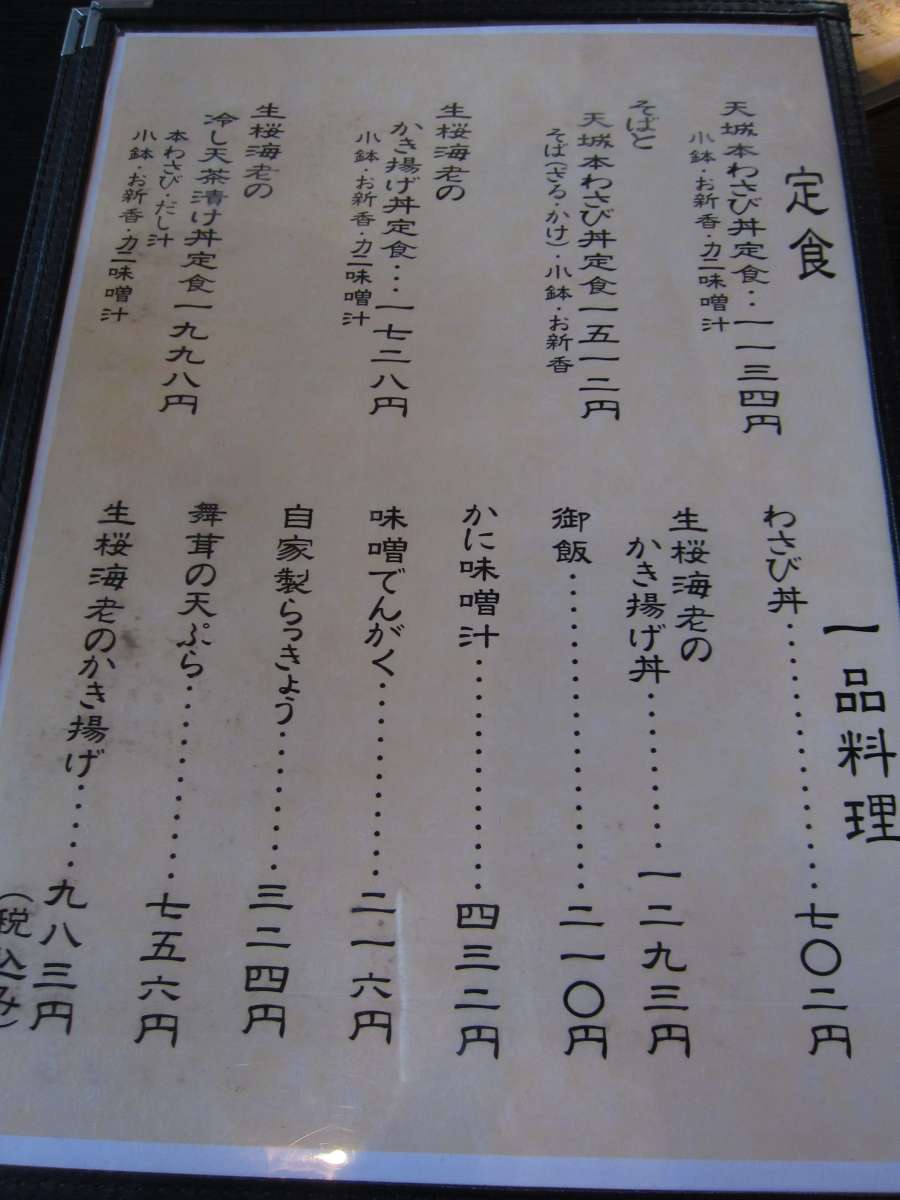 定食
天城本わさび丼定食・・・一一三四円
小鉢・お新香・カニ味噌汁
そばと
天城本わさび丼定食一五一二円
そば(ざる・かけ)・小鉢・お新香
生桜海老の
かき揚げ丼定食・・・一七二八円
小鉢・お新香・カニ味噌汁
生桜海老の
冷し天茶漬け丼定食一九九八円
本わさび・だし汁
小鉢・お新香・カニ味噌汁
一品料理
わさび丼・・・・・・・・・・・・・七〇二円
生桜海老の
かき揚げ丼・・・・・・・・・一二九三円
御飯・・・・・・・・・・・・・・・・二一〇円
かに味噌汁・・・・・・・・・・・・四三二円
味噌でんがく・・・・・・・・・・二一六円
自家製らっきょう・・・・・・・・三二四円
舞茸の天ぷら・・・・・・・・・・・七五六円
生桜海老のかき揚げ・・・・・九八三円
(税込み)